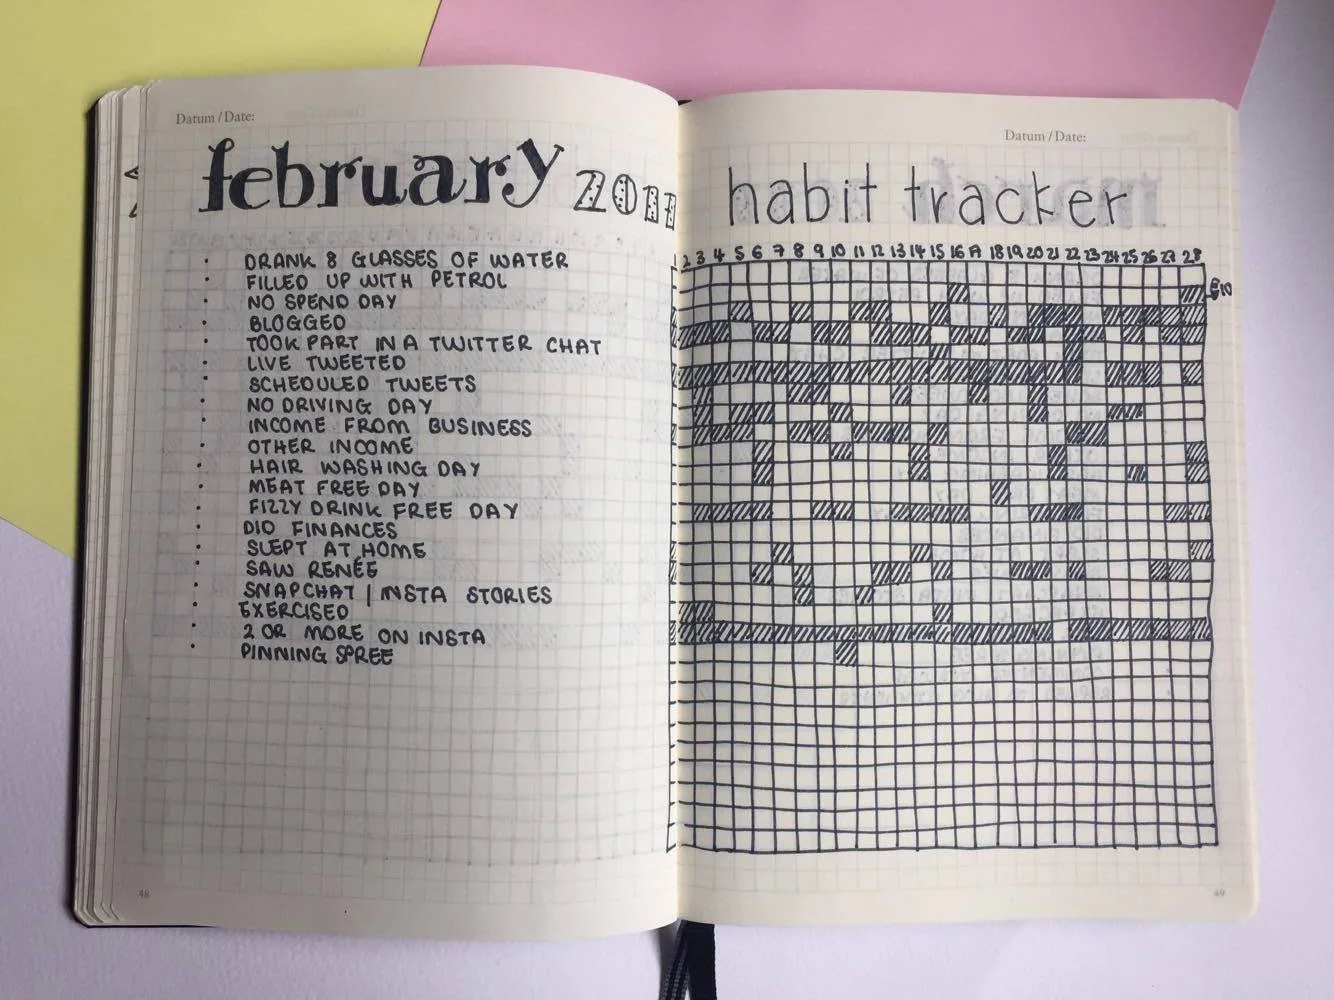 Datum / Date:
february 2017
DRANK 8 GLASSES OF WATER
FILLED UP WITH PETROL
NO SPEND DAY
BLOGGED
TOOK PART IN A TWITTER CHAT
LIVE TWEETED
SCHEDULED TWEETS
NO DRIVING DAY
INCOME FROM BUSINESS
OTHER INCOME
HAIR WASHING DAY
MEAT FREE DAY
FIZZY DRINK FREE DAY
DID FINANCES
SLEPT AT HOME
SAW RENÉE
SNAPCHAT | INSTA STORIES
EXERCISED
2 OR MORE ON INSTA
PINNING SPREE
48
Datum / Date:
habit tracker
2 3 4 5 6 7 8 9 10 11 12 13 14 15 16 17 18 19 20 21 22 23 24 25 26 27 28
£10
49